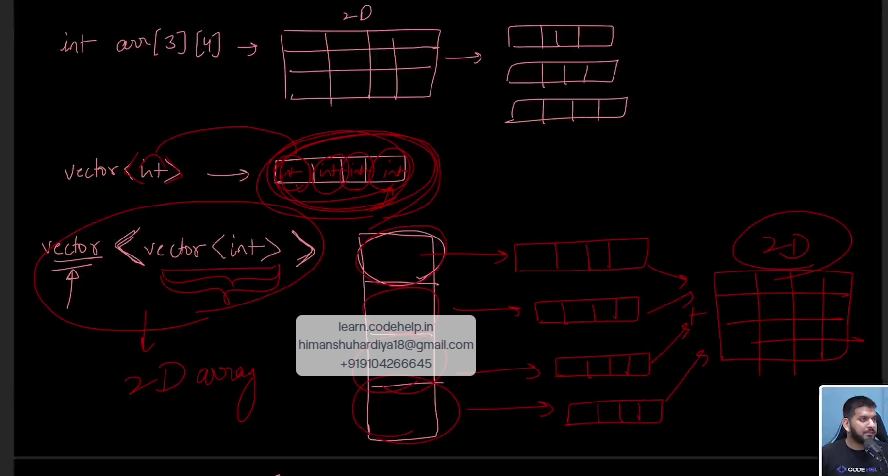 2-D
int arr[3][4] →
vector<int> →
int int int int
vector<vector<int>>
2-D
learn.codehelp.in
himanshuhardiya18@gmail.com
+919104266645
2-D array
CODE HELP